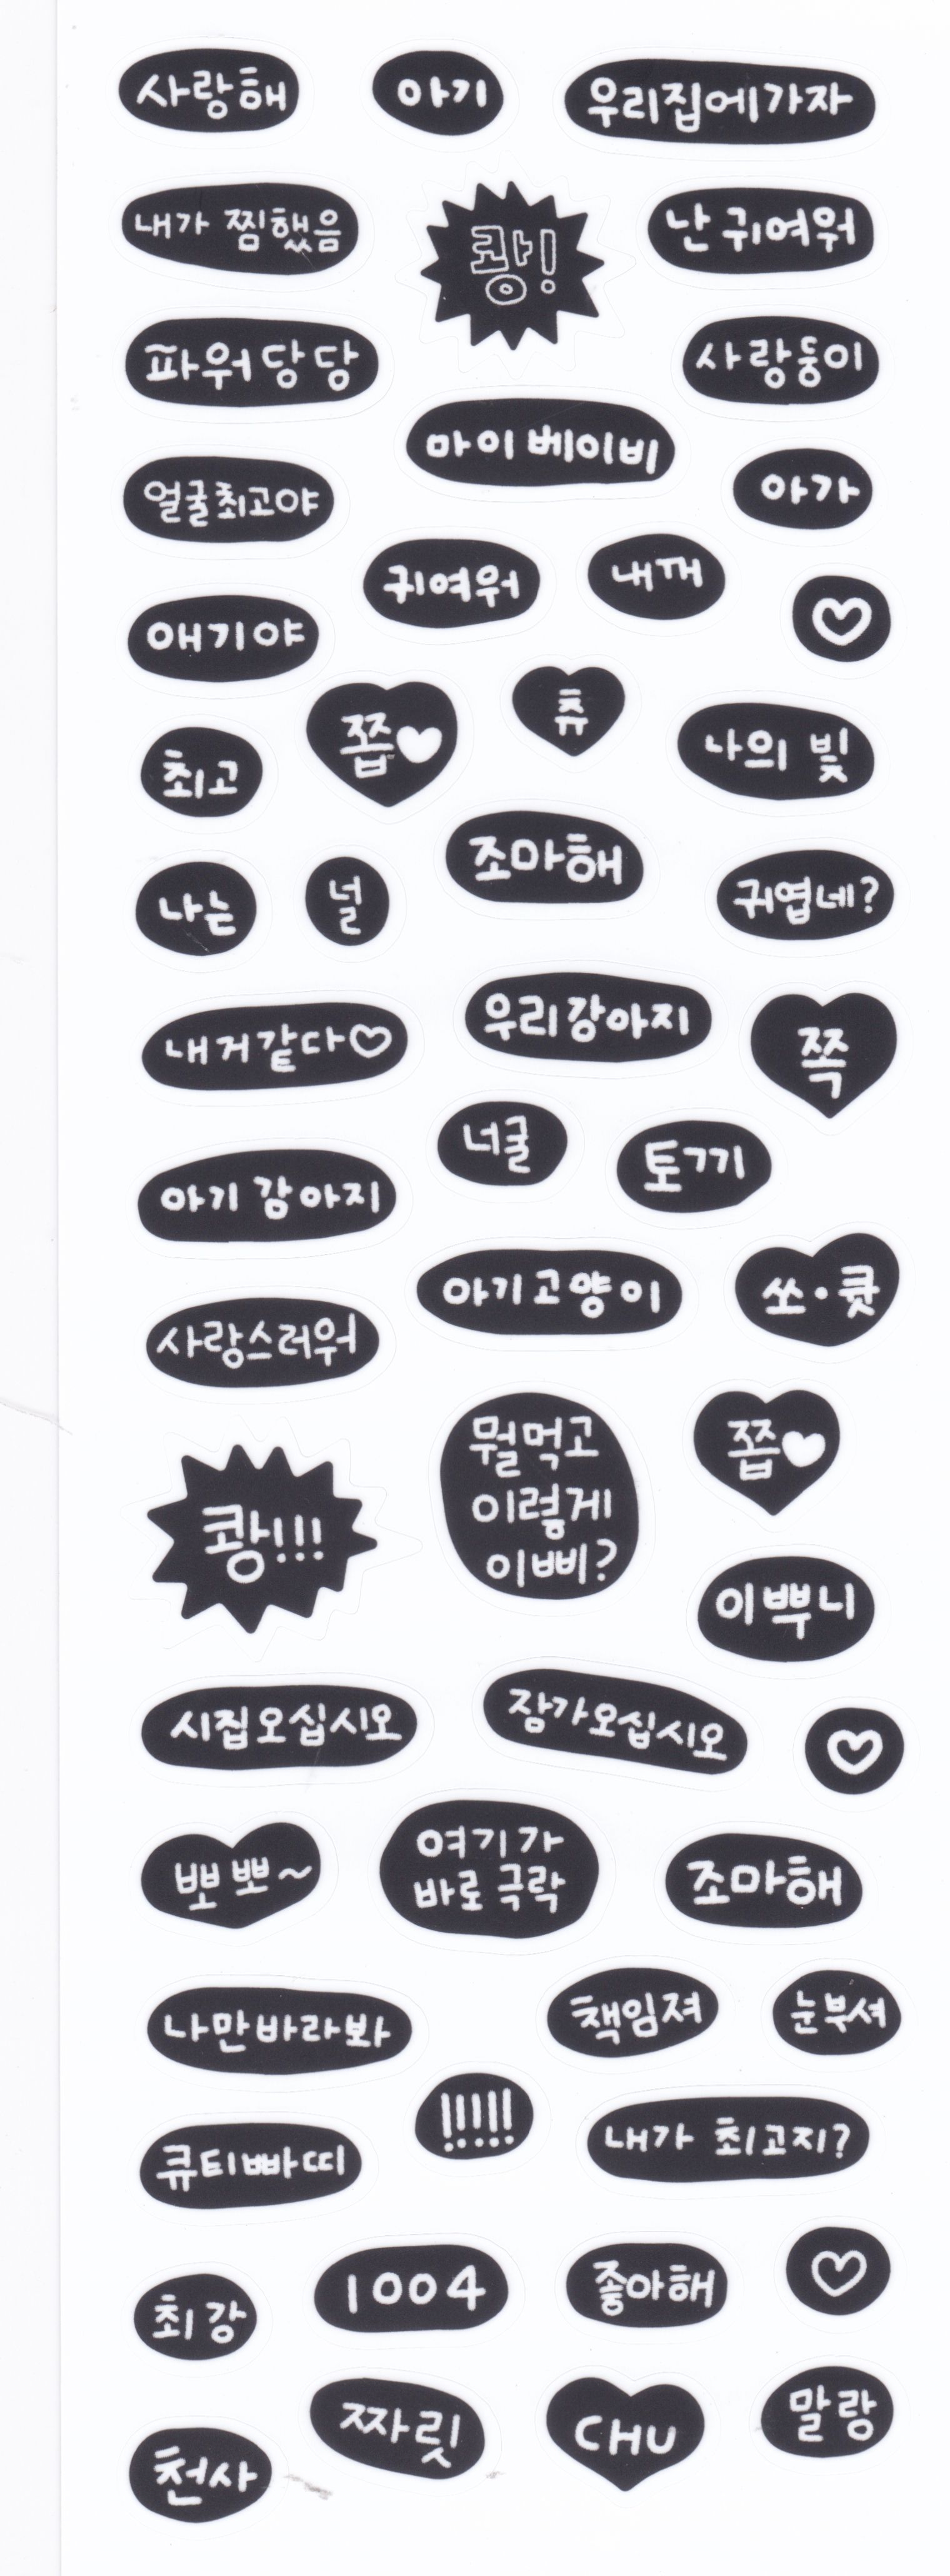 사랑해
아기
우리집에가자
내가 찜했음
쾅!
난 귀여워
파워당당
사랑둥이
마이 베이비
얼굴최고야
아가
귀여워
내꺼
애기야
쫍
츄
나의 빛
최고
조마해
나는
널
귀엽네?
우리강아지
내거같다♡
쪽
너굴
토끼
아기 감아지
아기고양이
쏘·큣
사랑스러워
뭘먹고
이렇게
이삐?
쫍
쾅!!!
이쁘니
시집오십시오
장가오십시오
뽀뽀~
여기가
바로 극락
조마해
나만바라봐
책임져
눈부셔
!!!!!
큐티빠띠
내가 최고지?
최강
1004
좋아해
짜릿
CHU
말랑
천사